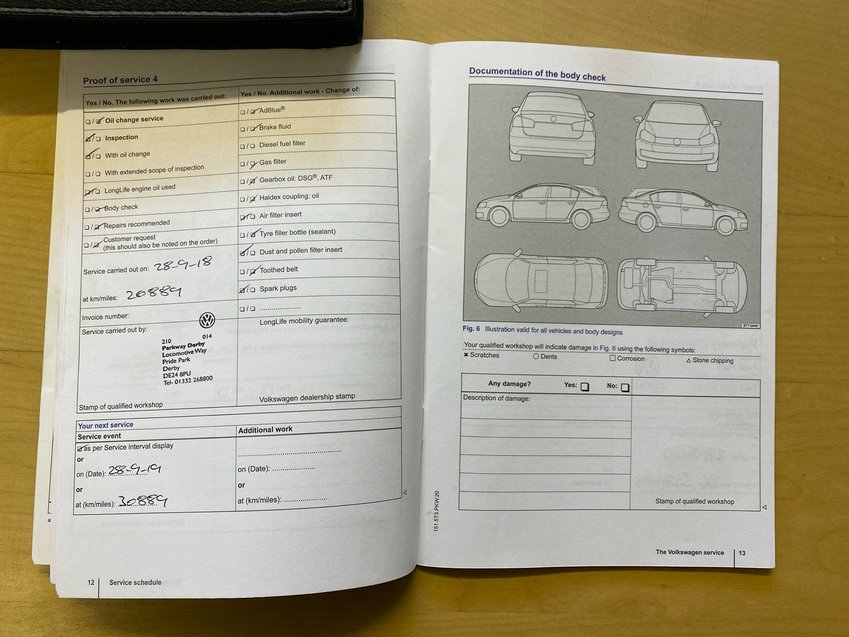 Proof of service 4
Yes / No. The following work was carried out:
Oil change service
Inspection
With oil change
With extended scope of inspection
LongLife engine oil used
Body check
Repairs recommended
Customer request
(this should also be noted on the order)
Service carried out on: 28-9-18
at km/miles: 20889
Invoice number:
Service carried out by:
210 014
Parkway Derby
Locomotive Way
Pride Park
Derby
DE24 8PU
Tel- 01332 268800
Stamp of qualified workshop
Yes / No. Additional work - Change of:
AdBlue®
Brake fluid
Diesel fuel filter
Gas filter
Gearbox oil: DSG®, ATF
Haldex coupling: oil
Air filter insert
Tyre filler bottle (sealant)
Dust and pollen filter insert
Toothed belt
Spark plugs
....................
LongLife mobility guarantee:
Volkswagen dealership stamp
Your next service
Service event
as per Service interval display
or
on (Date): 28-9-19
or
at (km/miles): 30889
Additional work
on (Date): ....................
or
at (km/miles): ....................
12 Service schedule
Documentation of the body check
Fig. 6 Illustration valid for all vehicles and body designs
Your qualified workshop will indicate damage in Fig. 6 using the following symbols:
Scratches Dents Corrosion Stone chipping
Any damage? Yes: No:
Description of damage:
Stamp of qualified workshop
151.5T3.PKW.20
The Volkswagen service 13